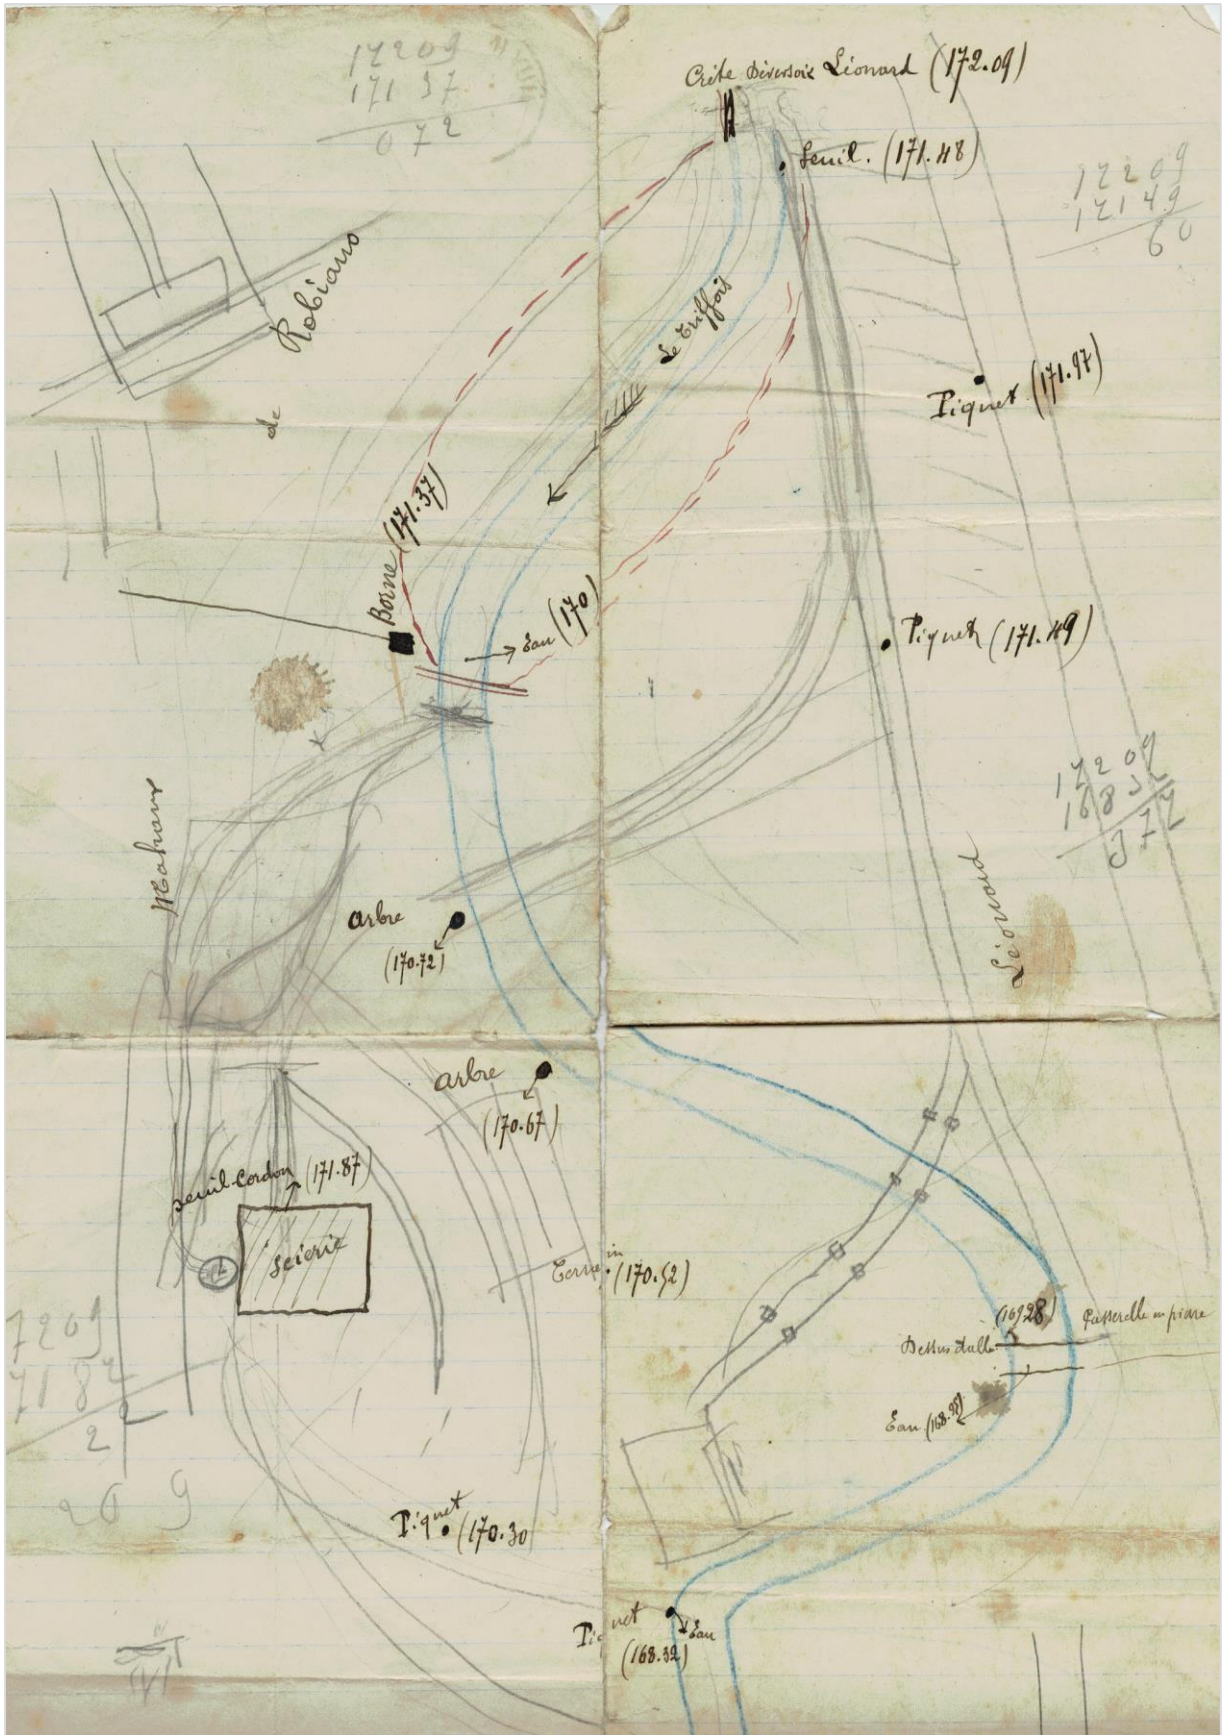 17209
17137
072
Crête Déversoir Léonard (172.09)
Seuil. (171.48)
17209
17149
60
de Robiano
Le Triffois
Piquet (171.97)
Borne (171.37)
Eau (170)
Piquet (171.49)
17209
16832
377
Mahaux
Léonard
arbre
(170.72)
arbre
(170.67)
Seuil-Cordon (171.87)
Scierie
Terrain (170.52)
(169.28)
Passerelle en pierre
Dessus dalle
Eau (168.98)
7209
7187
2
209
Piquet
(170.30
Piquet
Eau
(168.32)